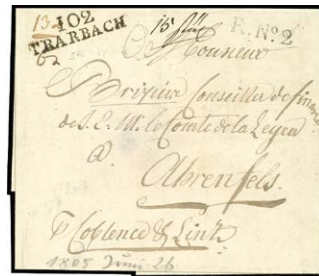 13
102
TRARBACH
15
R. No. 2
Monsieur
Conseiller de finance
de S. E. M. le Comte de la Leyen
a
Ahrenfels.
p Coblence & Linz
1805 Juni 26